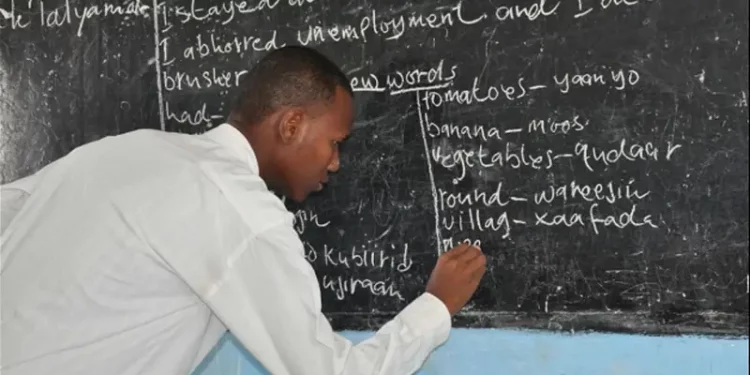 k' lalyamade
i stayed a
I abhorred unemployment. and I a
brusher
new words
had-
tomatoes- yaanyo
banana- moos.
vegetables- qudaar
round- wareesin
villag- xaafada
Kubiirid
ujiraan